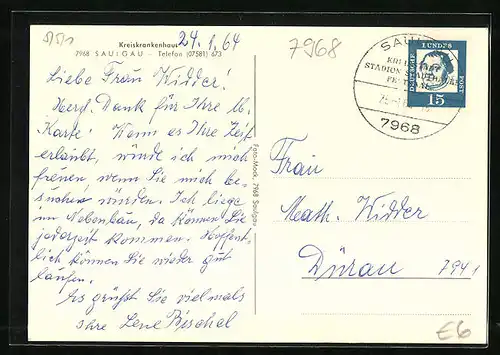 Kreiskrankenhaus
7968 SAULGAU - Telefon (07581) 673
24.1.64
7968
Liebe Frau Widder!
Herzl. Dank für Ihre lb.
Karte! Wenn es Ihre Zeit
erlaubt, würde ich mich
freuen, wenn Sie mich be-
suchen würden. Ich liege
im Nebenbau, da können Sie
jederzeit kommen. Hoffent-
lich können Sie wieder gut
laufen.
Es grüßt Sie vielmals
Ihre Lene Bischel
Foto-Mock, 7968 Saulgau
SAULGAU
STADION
7968
DEUTSCHE BUNDESPOST
15
Frau
Math. Widder
Dürnau 7941
E6